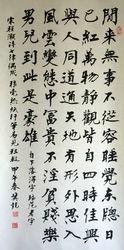 閒來無事不從容睡覺東窗日
已紅萬物靜觀皆自得四時佳興
與人同道通天地有形外思入
風雲變態中富貴不淫貧賤樂
男兒到此是豪雄
宋程顥詩七律偶成 甲午春